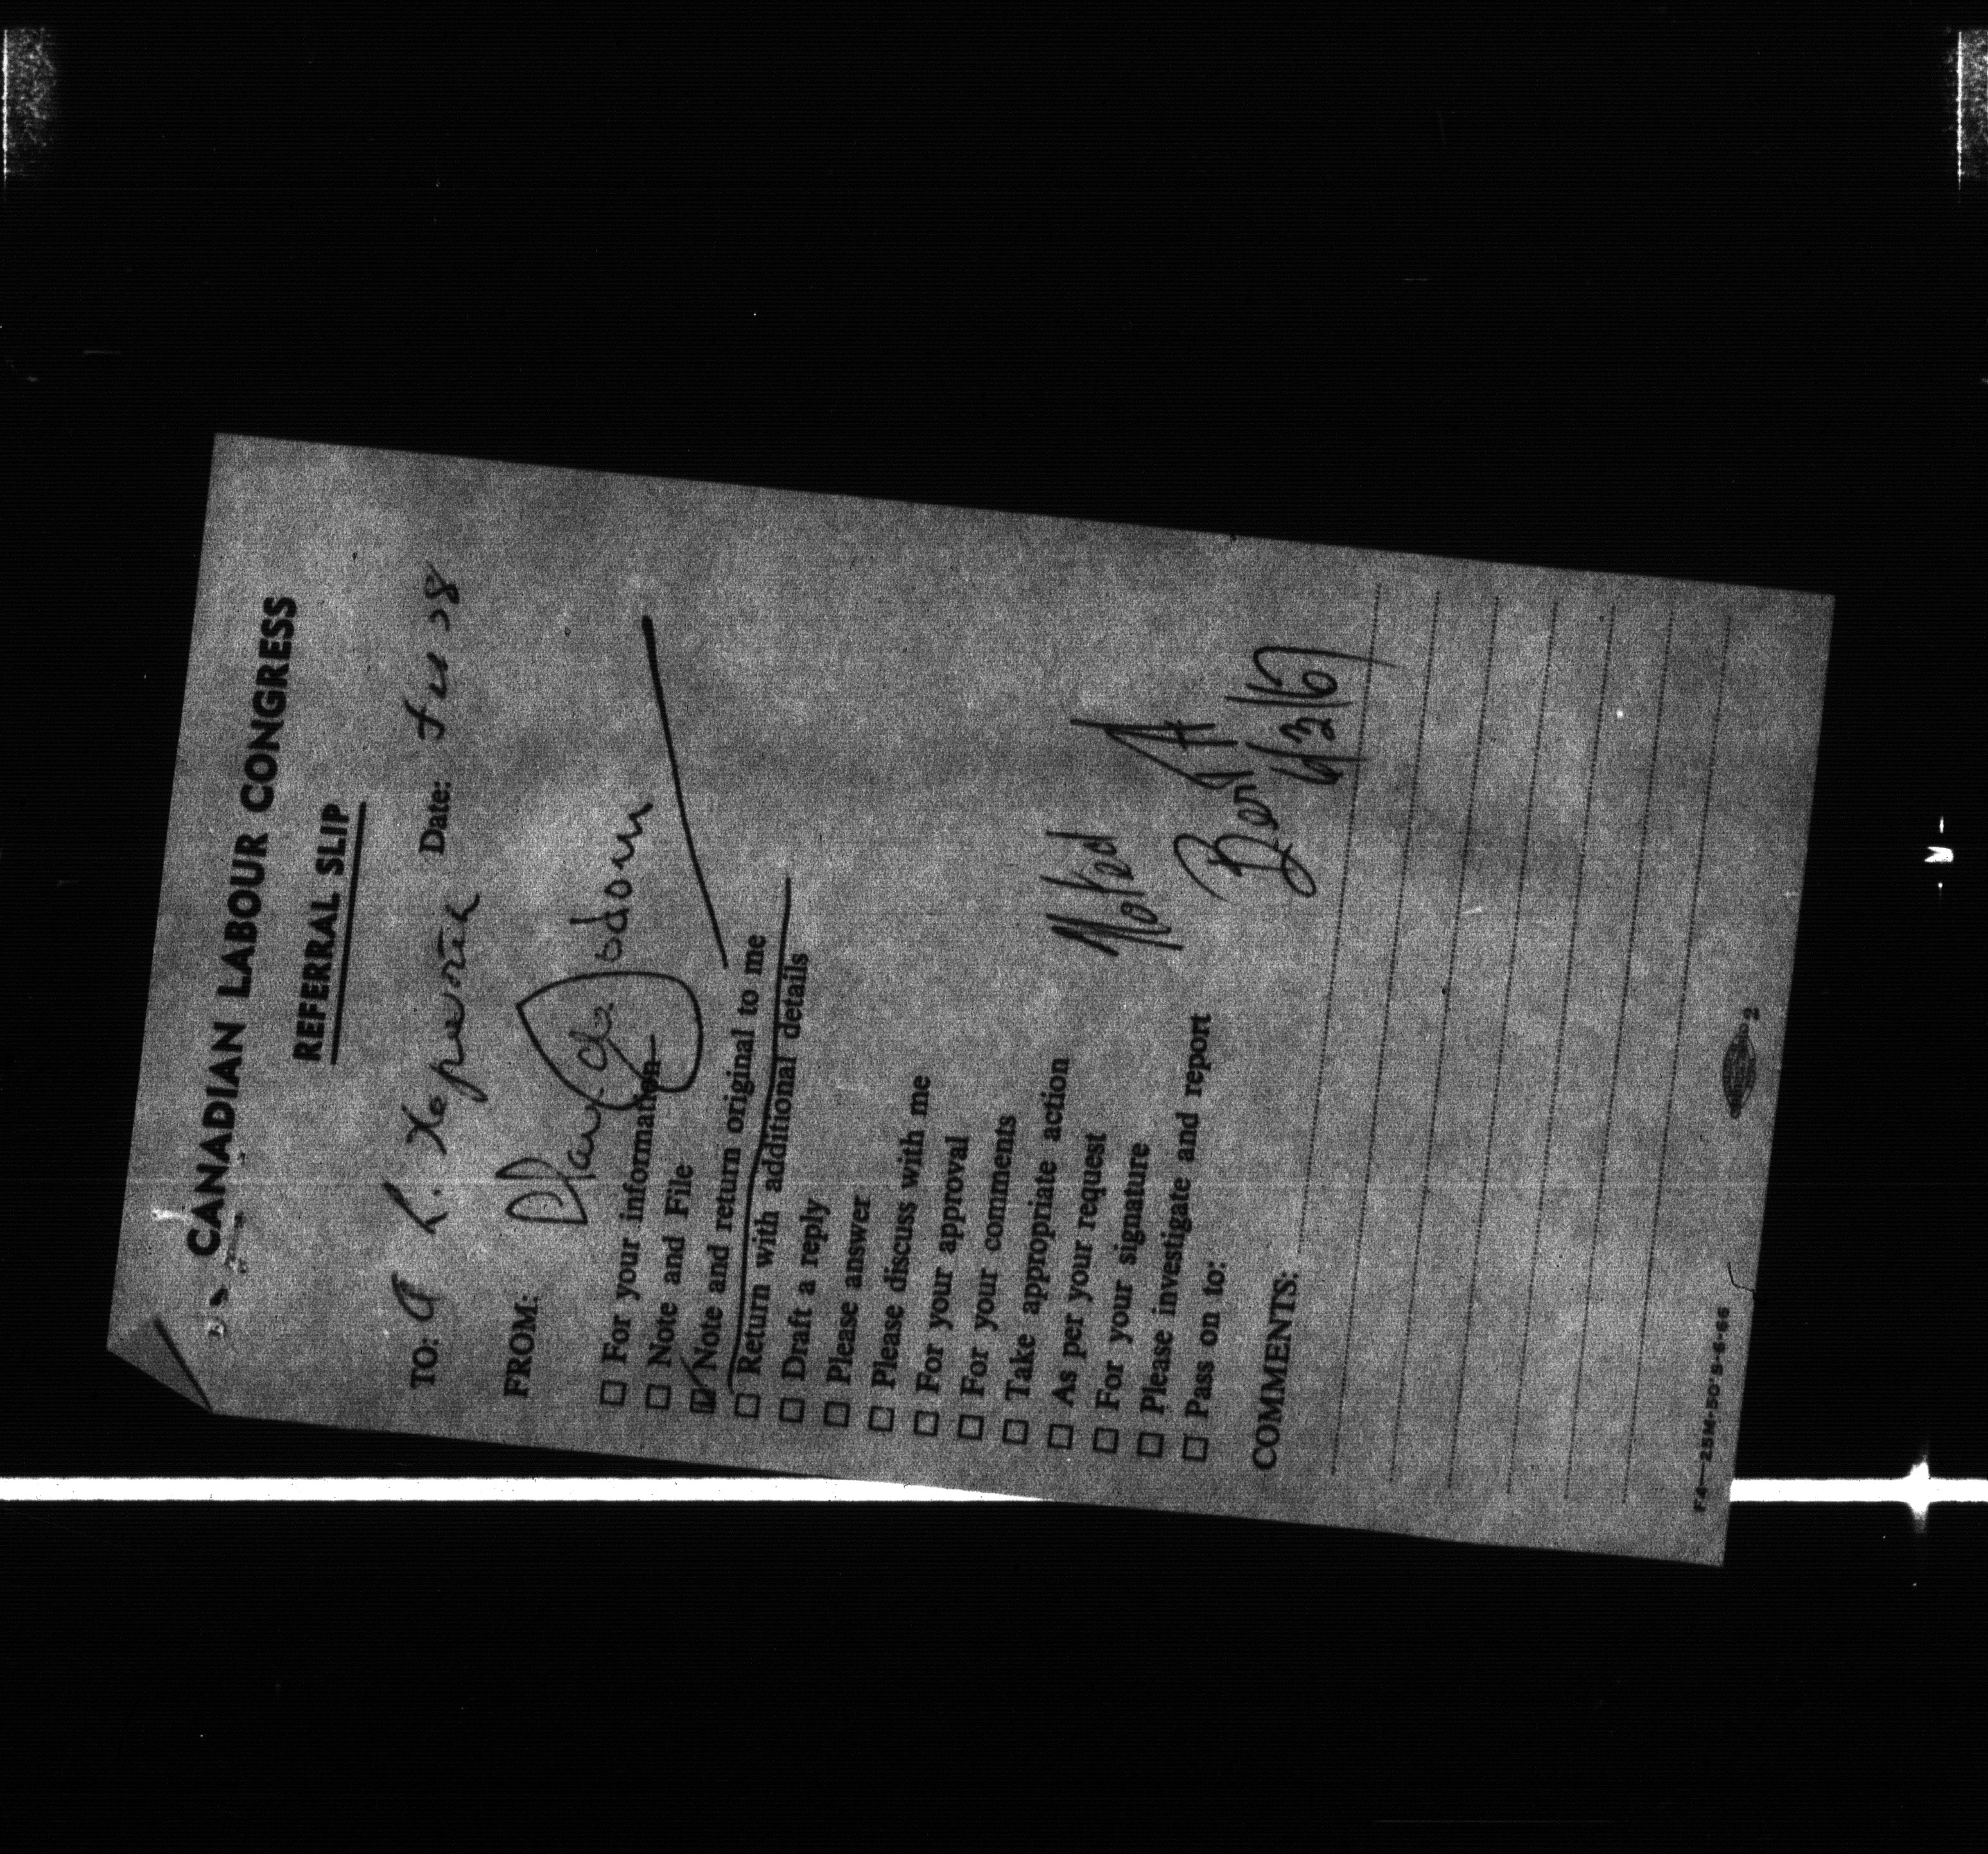 CANADIAN LABOUR CONGRESS
REFERRAL SLIP
TO: A L. Hepworth Date: 28
FROM:
☐ For your information
☐ Note and File
☑ Note and return original to me
☐ Return with additional details
☐ Draft a reply
☐ Please answer
☐ Please discuss with me
☐ For your approval
☐ For your comments
☐ Take appropriate action
☐ As per your request
☐ For your signature
☐ Please investigate and report
☐ Pass on to:
Noted
Bert
6/3/67
COMMENTS:
F4—25M-50'S-6-66
2